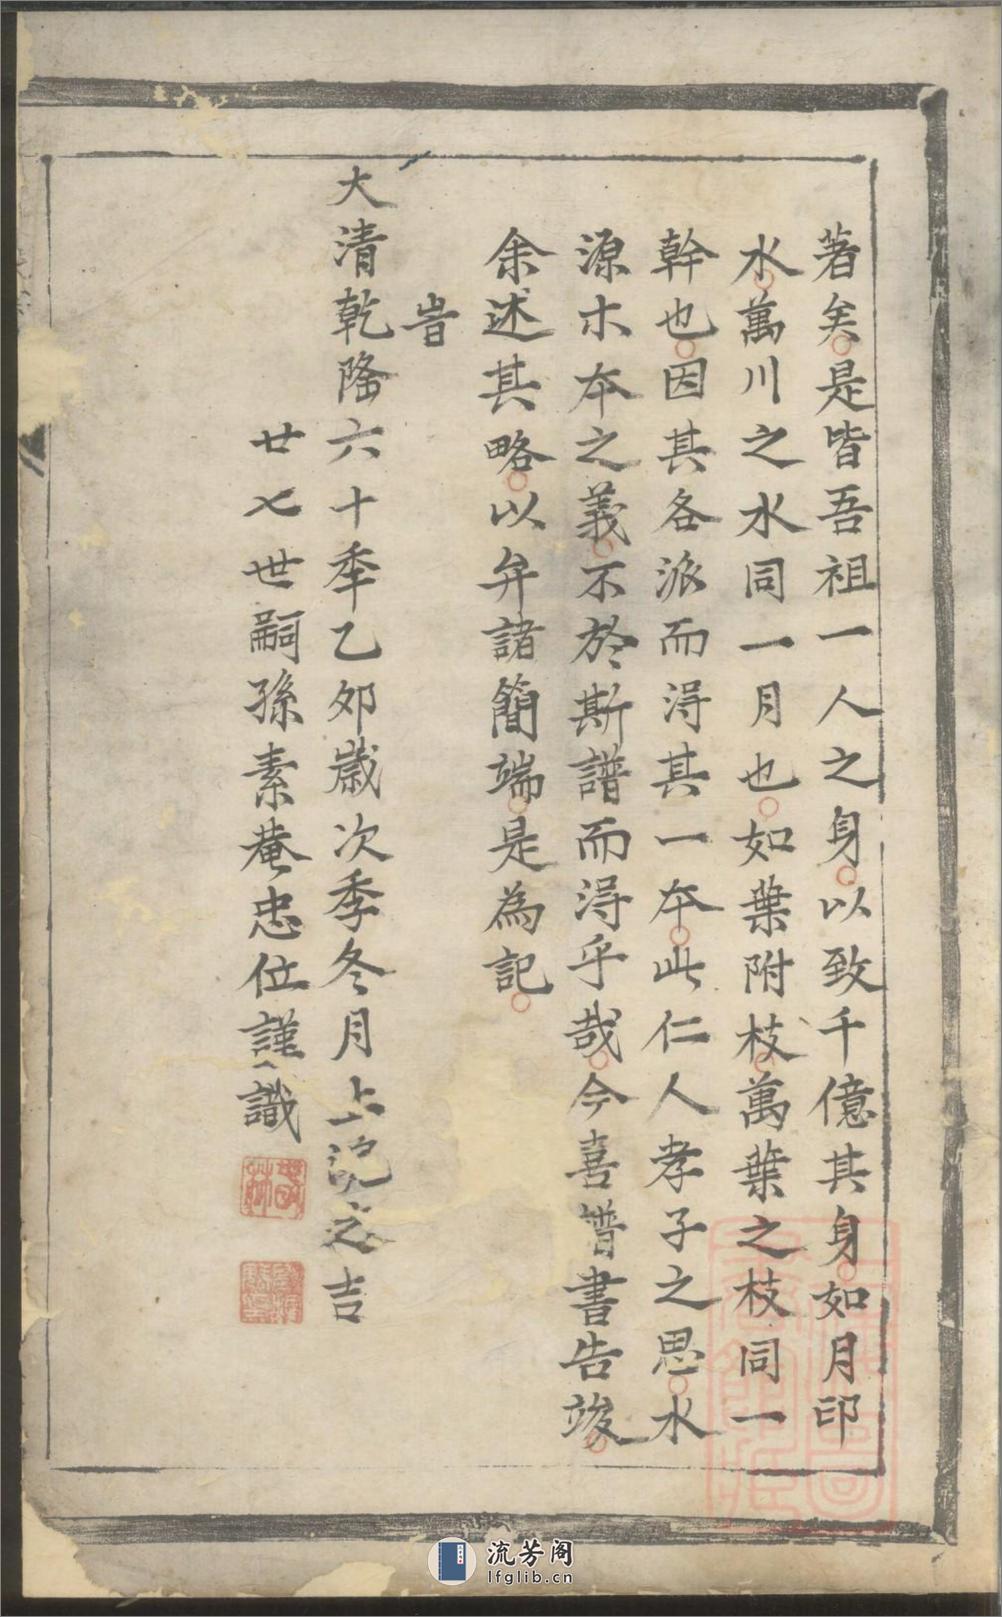 著矣是皆吾祖一人之身以致千億其身如月印
水萬川之水同一月也如葉附枝萬葉之枝同一
幹也因其各派而淂其一本此仁人孝子之思水
源木本之義不於斯譜而淂乎哉今喜譜書告竣
余述其略以弁諸簡端是為記
旹
大清乾隆六十季乙夘歲次季冬月上浣之吉
廿七世嗣孫素菴忠位謹識
流芳阁
lfglib.cn